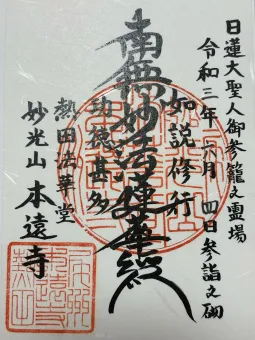 日蓮大聖人御参籠之霊場
令和三年六月四日参詣之砌
如説修行
南無妙法蓮華経
功徳甚多
熱田法華堂
妙光山本遠寺